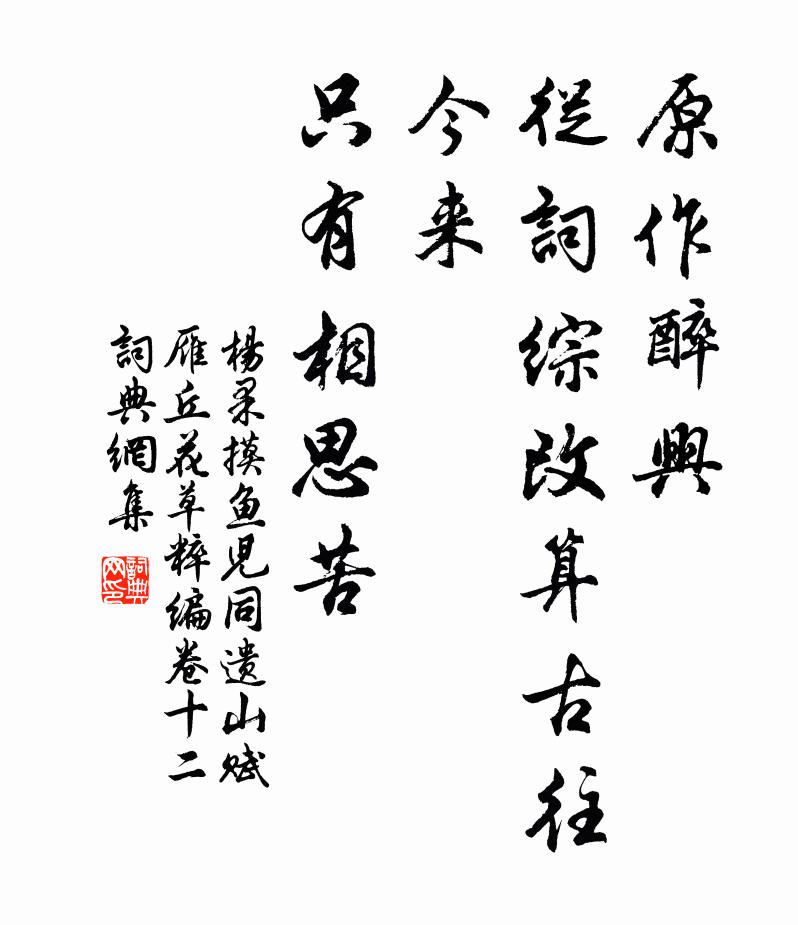 原作醉興
從詞綜改算古往
今来
只有相思苦
楊果摸鱼児同遺山賦
雁丘花草粹编卷十二
詞典網集
詞典网印